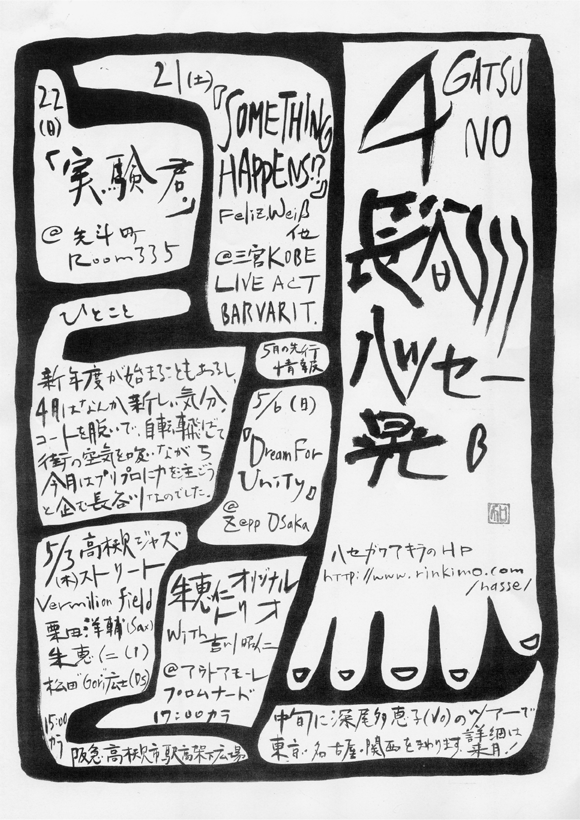 4 GATSU
NO
長谷川
ハッセー
晃 B
ハセガワアキラのHP
http://www.rinkimo.com
/hasse/
21(土)
『SOMETHING
HAPPENS!?』
Feliz,Weiß
他
@三宮KOBE
LIVE ACT
BARVARIT.
22
(日)
「実験君」
@先斗町
Room335
ひとこと
新年度が始まることもあるし、
4月はなんか新しい気分。
コートを脱いで、自転飛ばして
街の空気を吸いながら
今月はプリプロに力を注ごう
と企む長谷川なのでした。
5月の先行
情報
5/6(日)
『Dream For
Unity』
@
Zepp OSaka
5/3高槻ジャズ
(木)ストリート
Vermilion field
栗田洋輔(Sax)
朱恵仁(P)
松田"Gori"広士(Ds)
15:00
カラ
阪急高槻市駅高架下広場
朱恵仁オリジナル
トリオ
with 吉川
@アウトアモーレ
プロムナード
17:00カラ
中旬に深尾多恵子(Vo)のツアーで
東京・名古屋・関西をまわります。詳細は
来月!